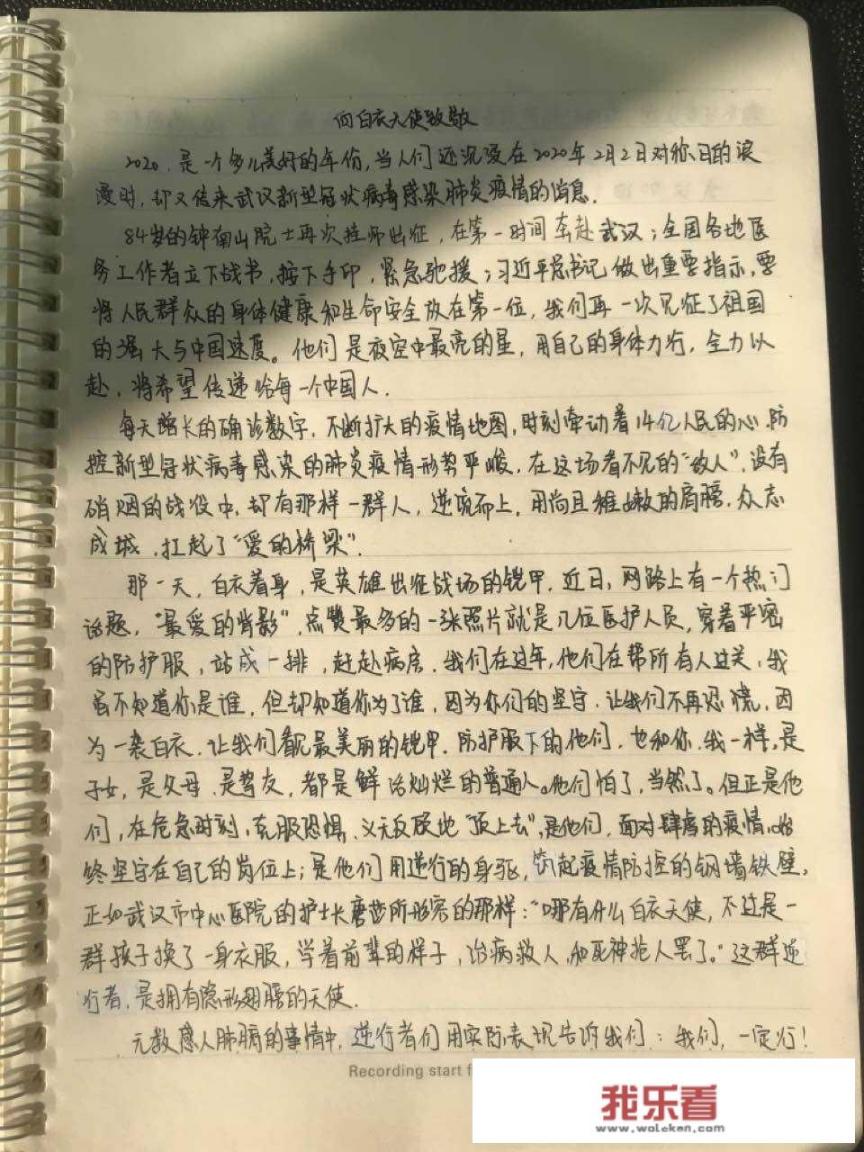 向白衣天使致敬
2020,是一个多么美好的年份,当人们还沉浸在2020年2月2日对称日的浪
漫时,却又传来武汉新型冠状病毒感染肺炎疫情的消息.
84岁的钟南山院士再次挂师出征,在第一时间奔赴武汉;全国各地医
务工作者立下战书,按下手印,紧急驰援;习近平总书记做出重要指示,要
将人民群众的身体健康和生命安全放在第一位,我们再一次见证了祖国
的强大与中国速度。他们是夜空中最亮的星,用自己的身体力行,全力以
赴,将希望传递给每一个中国人.
每天增长的确诊数字,不断扩大的疫情地图,时刻牵动着14亿人民的心.防
控新型冠状病毒感染的肺炎疫情形势严峻,在这场看不见的“敌人”,没有
硝烟的战役中,却有那样一群人,逆境而上,用尚且稚嫩的肩膀,众志
成城,扛起了“爱的桥梁”.
那一天,白衣着身,是英雄出征战场的铠甲.近日,网路上有一个热门
话题,“最爱的背影”,点赞最多的一张照片就是几位医护人员,穿着严密
的防护服,站成一排,赶赴病房.我们在过年,他们在帮所有人过关,我
虽不知道你是谁,但却知道你为了谁,因为你们的坚守,让我们不再恐慌,因
为一袭白衣,让我们看见最美丽的铠甲.防护服下的他们,也和你、我一样,是
子女,是父母,是挚友,都是鲜活灿烂的普通人。他们怕了,当然了。但正是他
们,在危急时刻,克服恐惧,义无反顾地“顶上去”,是他们,面对肆虐的疫情,始
终坚守在自己的岗位上;是他们用逆行的身躯,筑起疫情防控的钢墙铁壁,
正如武汉市中心医院的护士长唐莎所形容的那样:“哪有什么白衣天使,不过是一
群孩子换了一身衣服,学着前辈的样子,治病救人,和死神抢人罢了。”这群逆
行者,是拥有隐形翅膀的天使.
无数感人肺腑的事情中,逆行者们用实际表现告诉我们:我们,一定行!
Recording start f
我乐看
www.woleken.com